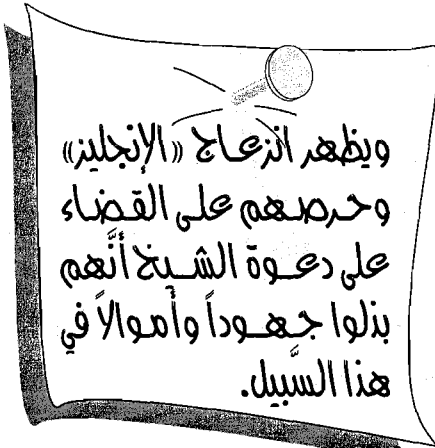 ويظهر انزعاج «الإنجليز»
وحرصهم على القضاء
على دعوة الشيخ أنَّهم
بذلوا جهوداً وأموالاً في
هذا السَّبيل.